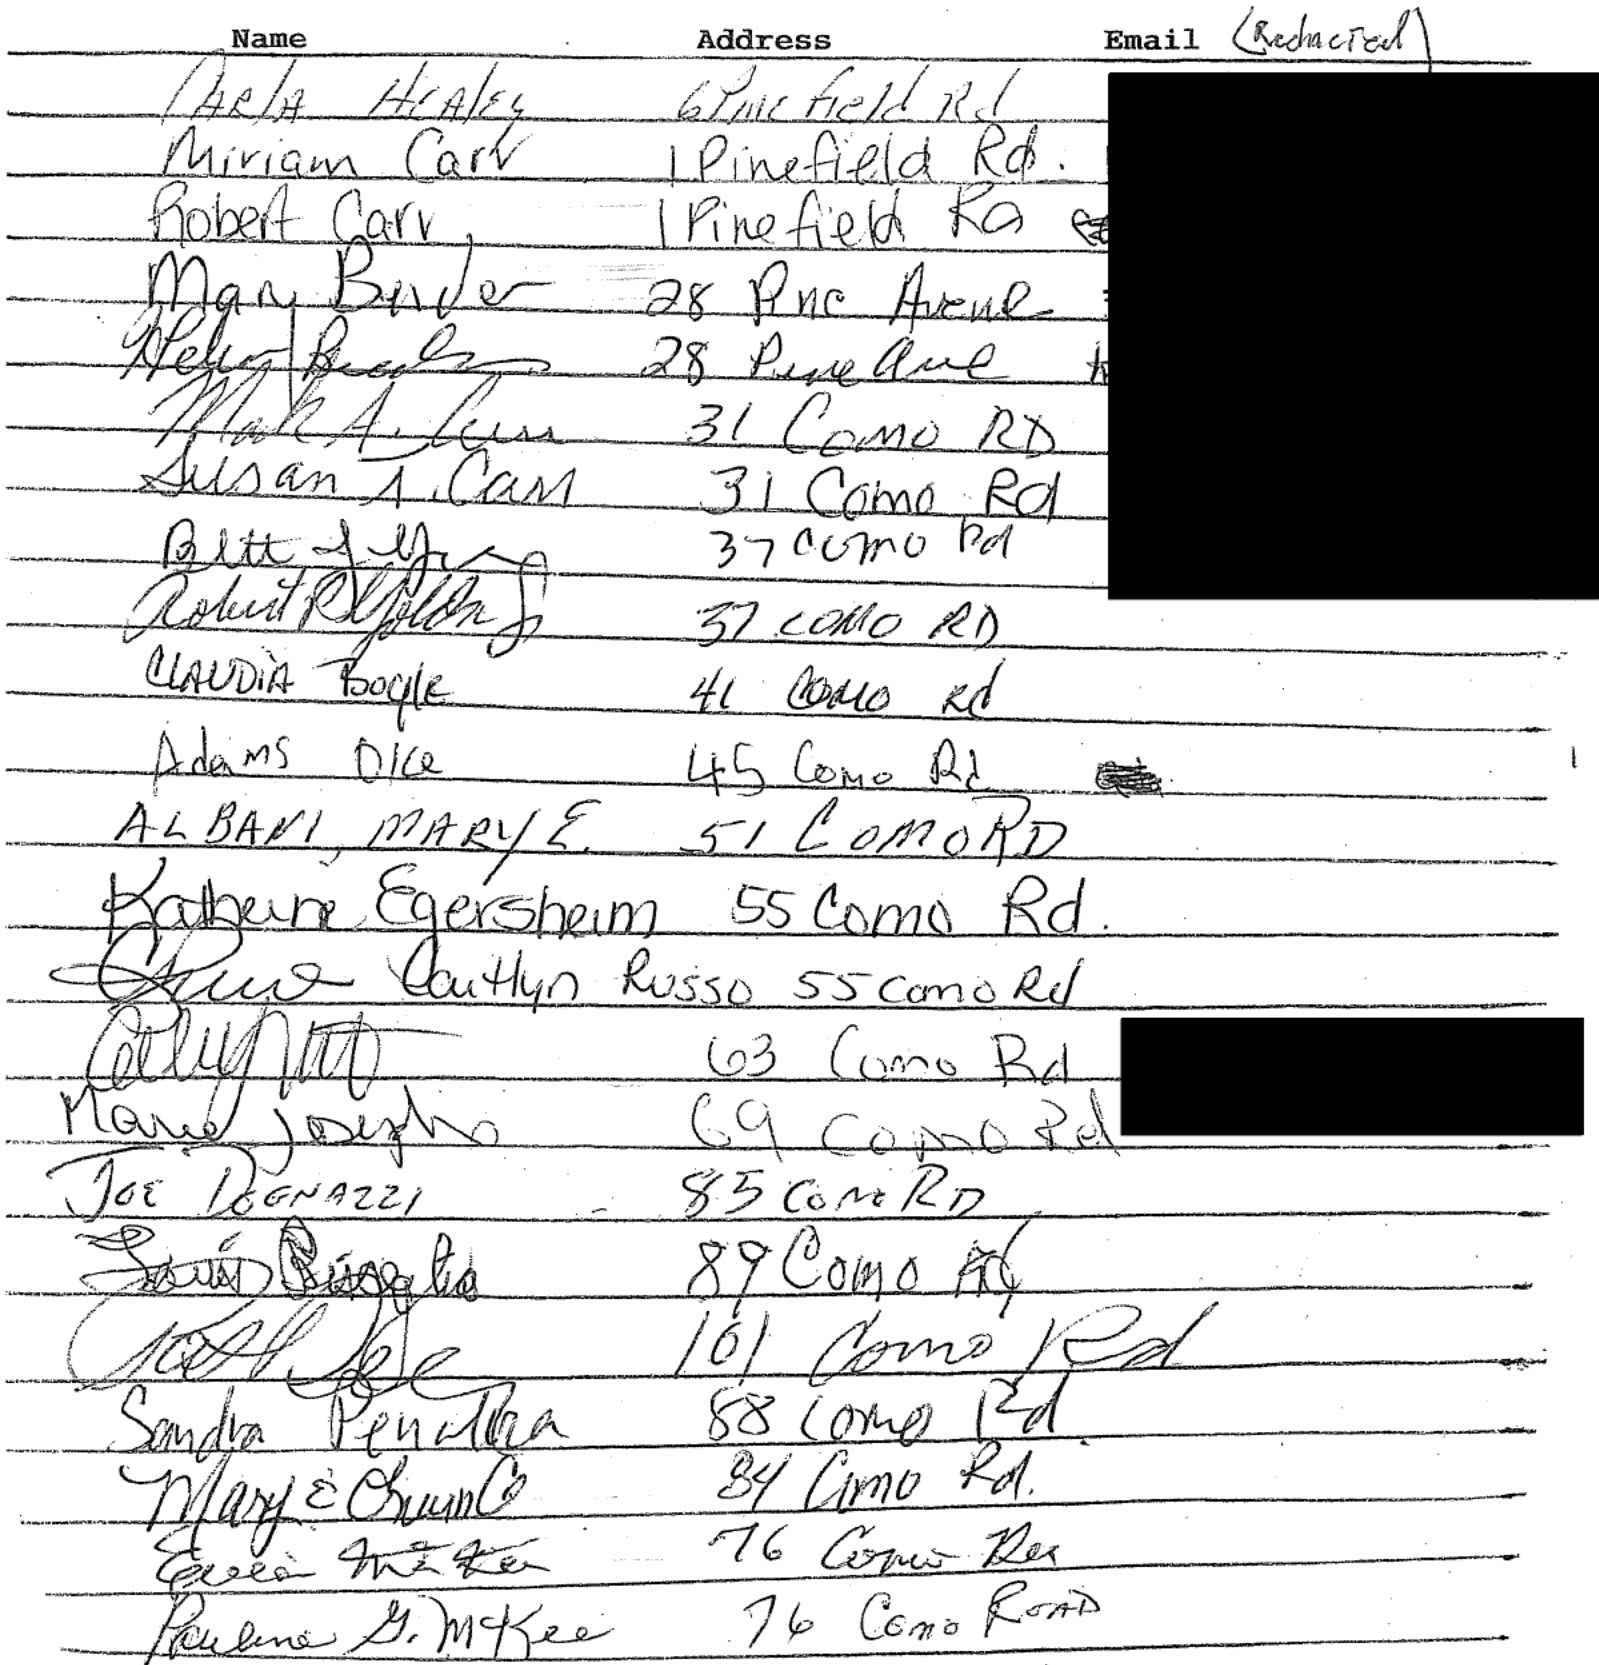 Name Address Email (Redacted)
CARLA HEALEY 6 Pinefield Rd
Miriam Carr 1 Pinefield Rd.
Robert Carr 1 Pinefield Rd
Mary Binder 28 Pine Avenue
28 Pine Ave
Mark A. 31 Como RD
Susan A. Carr 31 Como Rd
37 Como Rd
Robert 37 COMO RD
CLAUDIA Bogle 41 COMO Rd
Adams Dice 45 Como Rd
ALBANI, MARY E. 51 COMO RD
Katherine Egersheim 55 Como Rd.
Caitlyn Russo 55 Como Rd
63 Como Rd
Marie Josephs 69 Como Rd
JOE DOGNAZZI 85 Como RD
89 Como Rd
101 Como Rd
Sandra 88 Como Rd.
Mary E 84 Como Rd.
76 Como Rd
Pauline G. McKee 76 Como ROAD